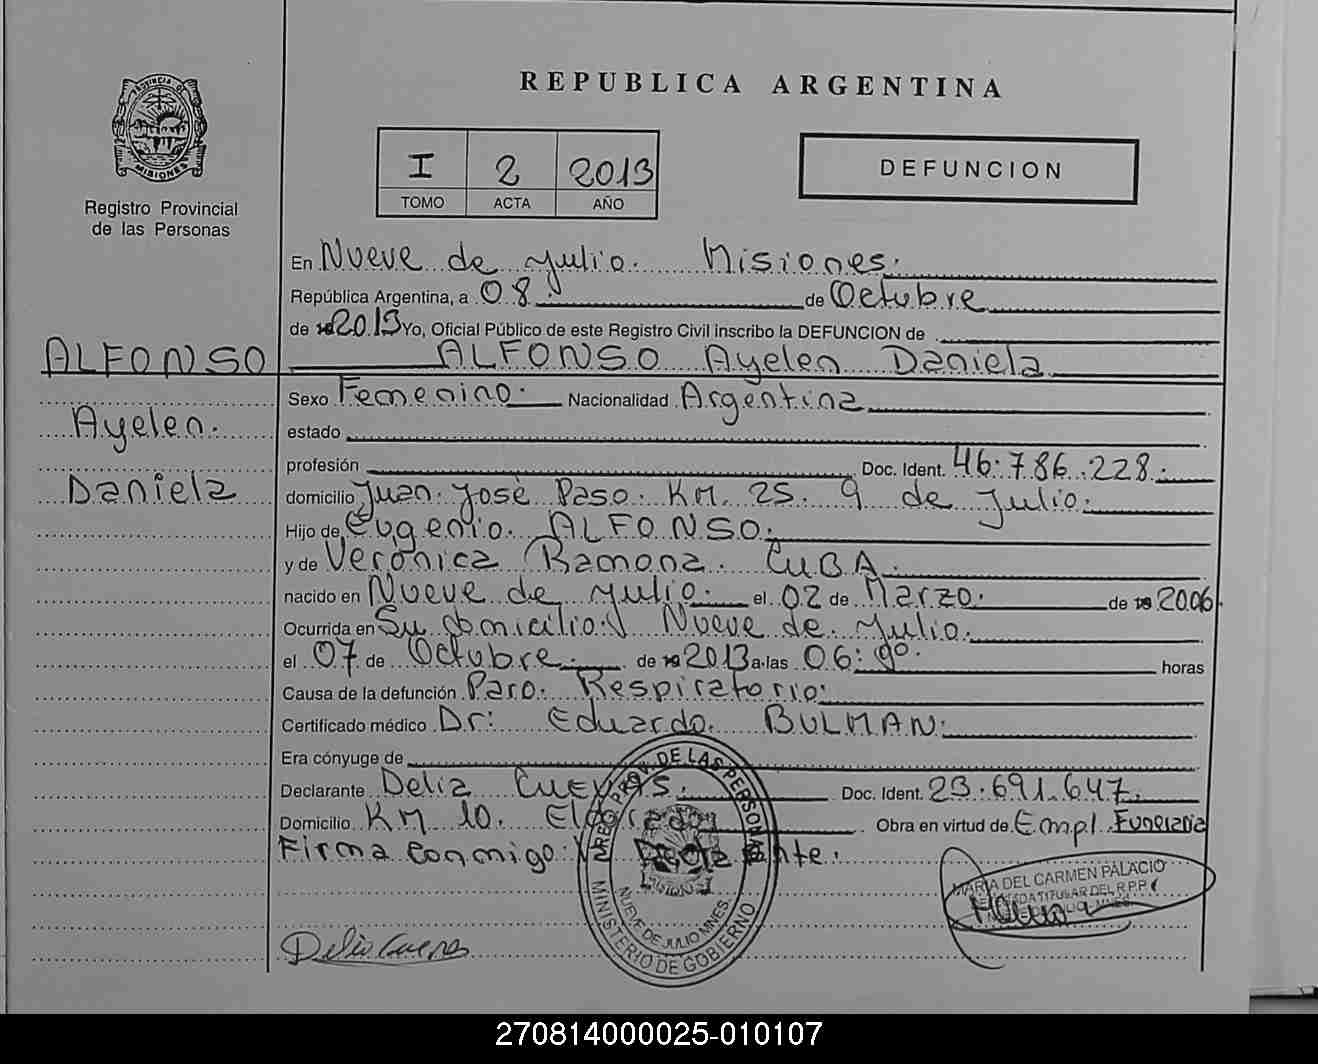 REPUBLICA ARGENTINA
PROVINCIA D
MISIONES
Registro Provincial
de las Personas
I 2 2013
TOMO ACTA AÑO
DEFUNCION
En Nueve de Julio. Misiones.
República Argentina, a 08. de Octubre
de 19 2013 Yo, Oficial Público de este Registro Civil inscribo la DEFUNCION de
ALFONSO ALFONSO Ayelen Daniela
Ayelen.
Daniela
Sexo Femenino. Nacionalidad Argentina
estado
profesión Doc. Ident. 46.786.228.
domicilio Juan José Paso. KM. 25. 9 de Julio.
Hijo de Eugenio. ALFONSO.
y de Verónica Ramona. CUBA.
nacido en Nueve de Julio. el 02 de Marzo. de 19 2006
Ocurrida en Su domicilio. Nueve de Julio.
el 07 de Octubre. de 19 2013 a las 06: horas
Causa de la defunción Paro. Respiratorio.
Certificado médico Dr: Eduardo. BULMAN.
Era cónyuge de
Declarante Delia CUEVAS. Doc. Ident. 23.691.647.
Domicilio KM 10. Eldorado. Obra en virtud de Empl. Funeraria
Firma conmigo: Declarante.
PROV. DE LAS PERSONAS
MISIONES
NUEVE DE JULIO MNES.
MINISTERIO DE GOBIERNO
MARIA DEL CARMEN PALACIO
TITULAR DEL R.P.P.
Delia Cuevas
270814000025-010107